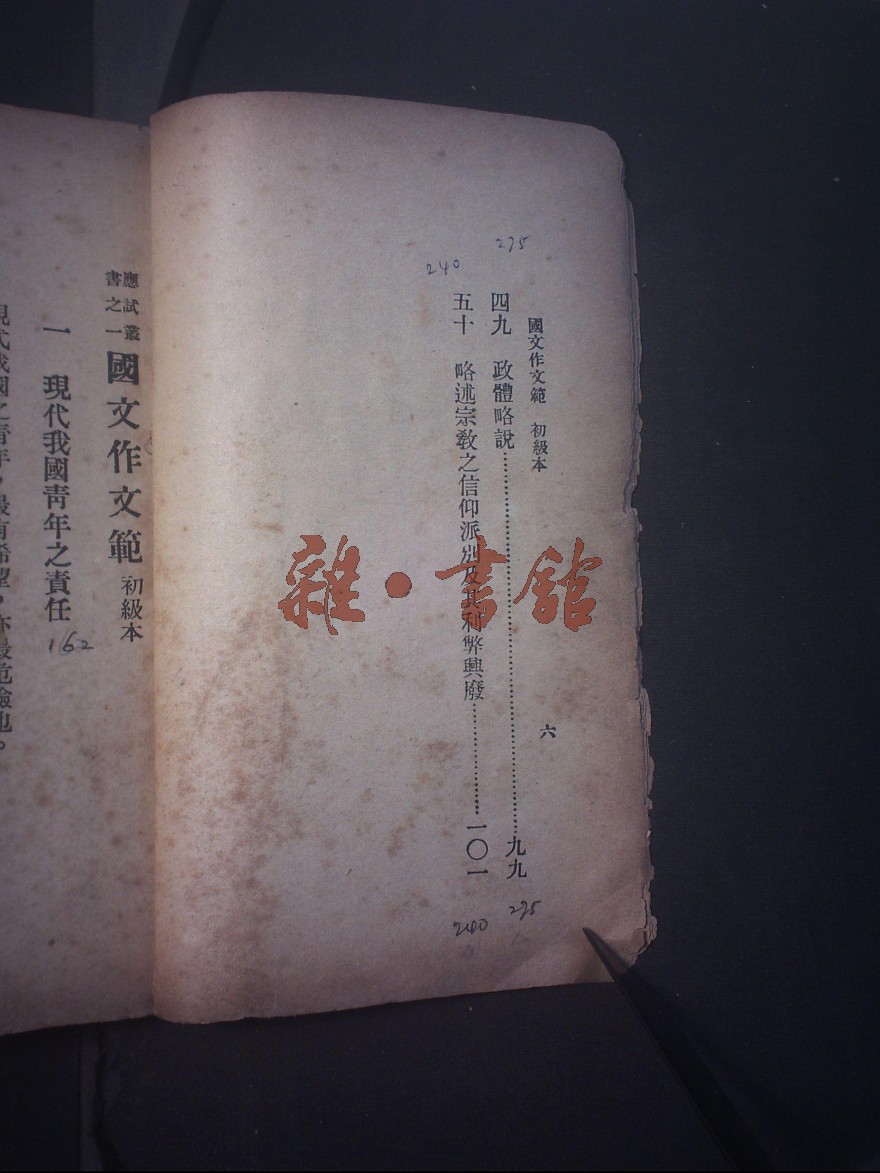 國文作文範 初級本
六
275
四九 政體略說……九九
275
240
五十 略述宗教之信仰派別及其利弊興廢……一〇一
240
應試叢書之一 國文作文範 初級本
一 現代我國靑年之責任
162
現代我國之靑年，最有希望，亦最危險也。
雜·書館